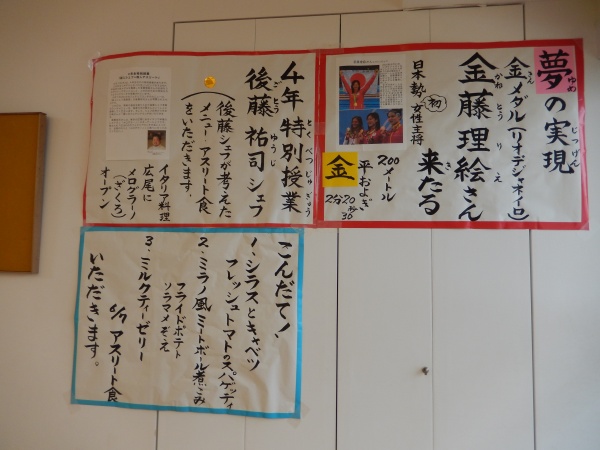 夢の実現
ゆめ
じつげん
金メダル(リオデジャネイロ)
きん
金藤理絵さん
かねとうりえ
来たる
き
日本勢女性主将
初
200メートル
平およぎ
2分20秒30
金
4年特別授業
とくべつじゅぎょう
後藤祐司シェフ
ごとうゆうじ
(後藤シェフが考えた
メニューアスリート食
をいただきます。)
イタリア料理
広尾に
メログラーノ
(ざくろ)
オープン
こんだて!
1、シラスとキャベツ
フレッシュトマトのスパゲッティ
2、ミラノ風ミートボール煮こみ
フライドポテト
ソラマメぞえ
3、ミルクティーゼリー
6/7 アスリート食
いただきます。